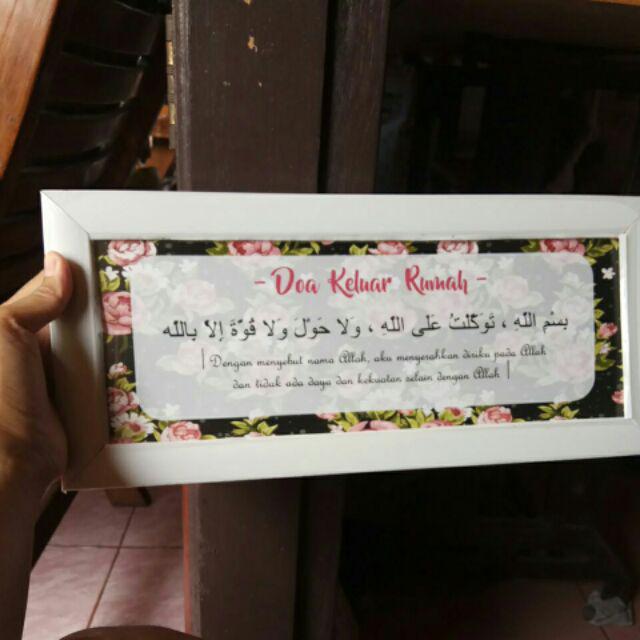 - Doa Keluar Rumah -
بِسْمِ اللهِ ، تَوَكَّلْتُ عَلَى اللهِ ، وَلَا حَوْلَ وَلَا قُوَّةَ إِلاَّ بِاللهِ
Dengan menyebut nama Allah, aku menyerahkan diriku pada Allah
dan tidak ada daya dan kekuatan selain dengan Allah